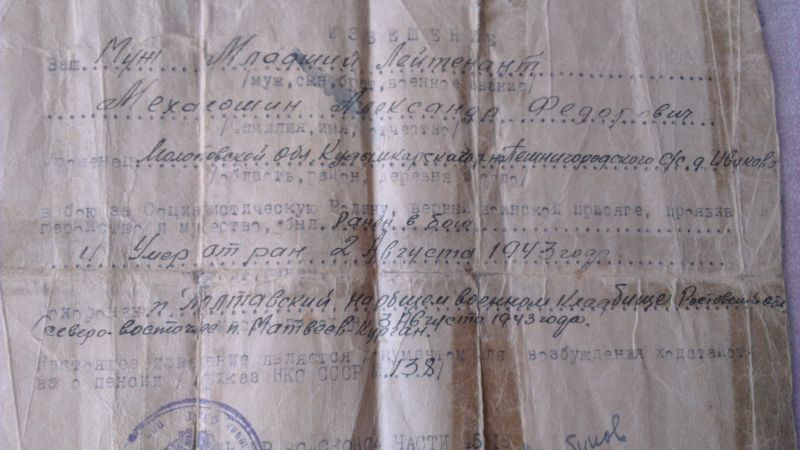 ИЗВЕЩЕНИЕ
Ваш Муж Младший Лейтенант
/муж, сын, брат, военное звание/
Мехоношин Александр Федорович
/фамилия, имя, отчество/
Уроженец Молотовской обл. с/с д.
/область, район, деревня и село/
в бою за Социалистическую Родину, верный воинской присяге, проявив
геройство и мужество, был Ранен в бою
и Умер от ран 2 Августа 1943 года
похоронен п. Полтавский на общем военном кладбище Ростовской обл
северо-восточнее п. Матвеев-Курган. 3 Августа 1943 года.
Настоящее извещение является документом для возбуждения ходатайст-
ва о пенсии /приказ НКО СССР 138/
ВОЙСКОВОЙ ЧАСТИ